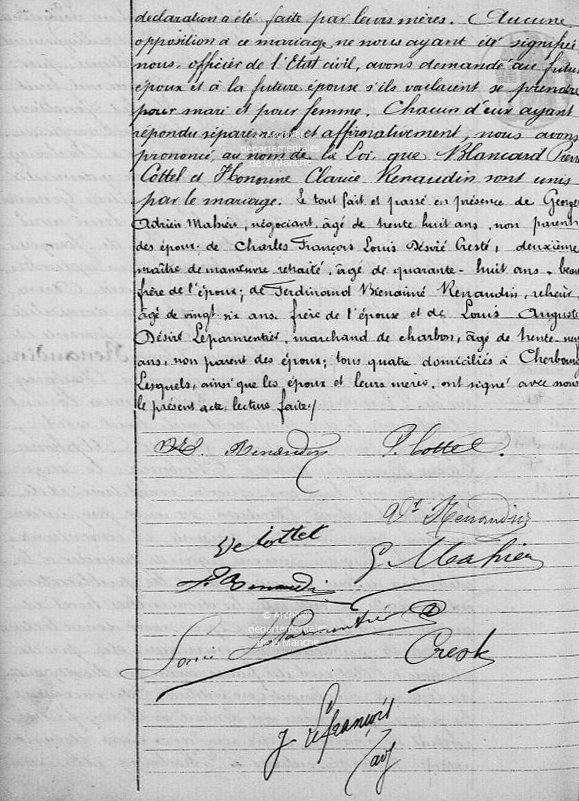 déclaration a été faite par leurs mères. Aucune
opposition à ce mariage ne nous ayant été signifiée
nous, officier de l'État civil, avons demandé au futur
époux et à la future épouse s'ils voulaient se prendre
pour mari et pour femme. Chacun d'eux ayant
répondu séparément et affirmativement, nous avons
prononcé, au nom de la Loi, que Blancard Pierre
Cottel et Honorine Clarice Renaudin sont unis
par le mariage. Le tout fait et passé en présence de Georges
Adrien Mahieu, négociant, âgé de trente huit ans, non parent
des époux; de Charles François Louis Désiré Cresté, deuxième
maître de manœuvre retraité, âgé de quarante-huit ans, beau
frère de l'époux; de Ferdinand Bienaimé Renaudin,
âgé de vingt six ans, frère de l'épouse et de Louis Auguste
Désiré Leparmentier, marchand de charbon, âgé de trente-neuf
ans, non parent des époux; tous quatre domiciliés à Cherbourg
Lesquels, ainsi que les époux et leurs mères, ont signé avec nous
le présent acte, lecture faite./.
Renaudin P. Cottel.
Ve Cottel Ve Renaudin
G. Mahieu
F. Renaudin
Leparmentier
Cresté
J Lefrançois
© Archives
départementales
de la Manche
© Archives
départementales
de la Manche